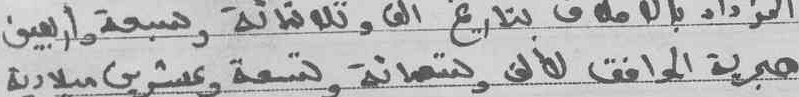 المزداد بالاصلاف بتاريخ الف وثلاثمائة وسبعة وأربعين
هجرية الموافق لألف وتسعمائة وتسعة وعشرين ميلادية